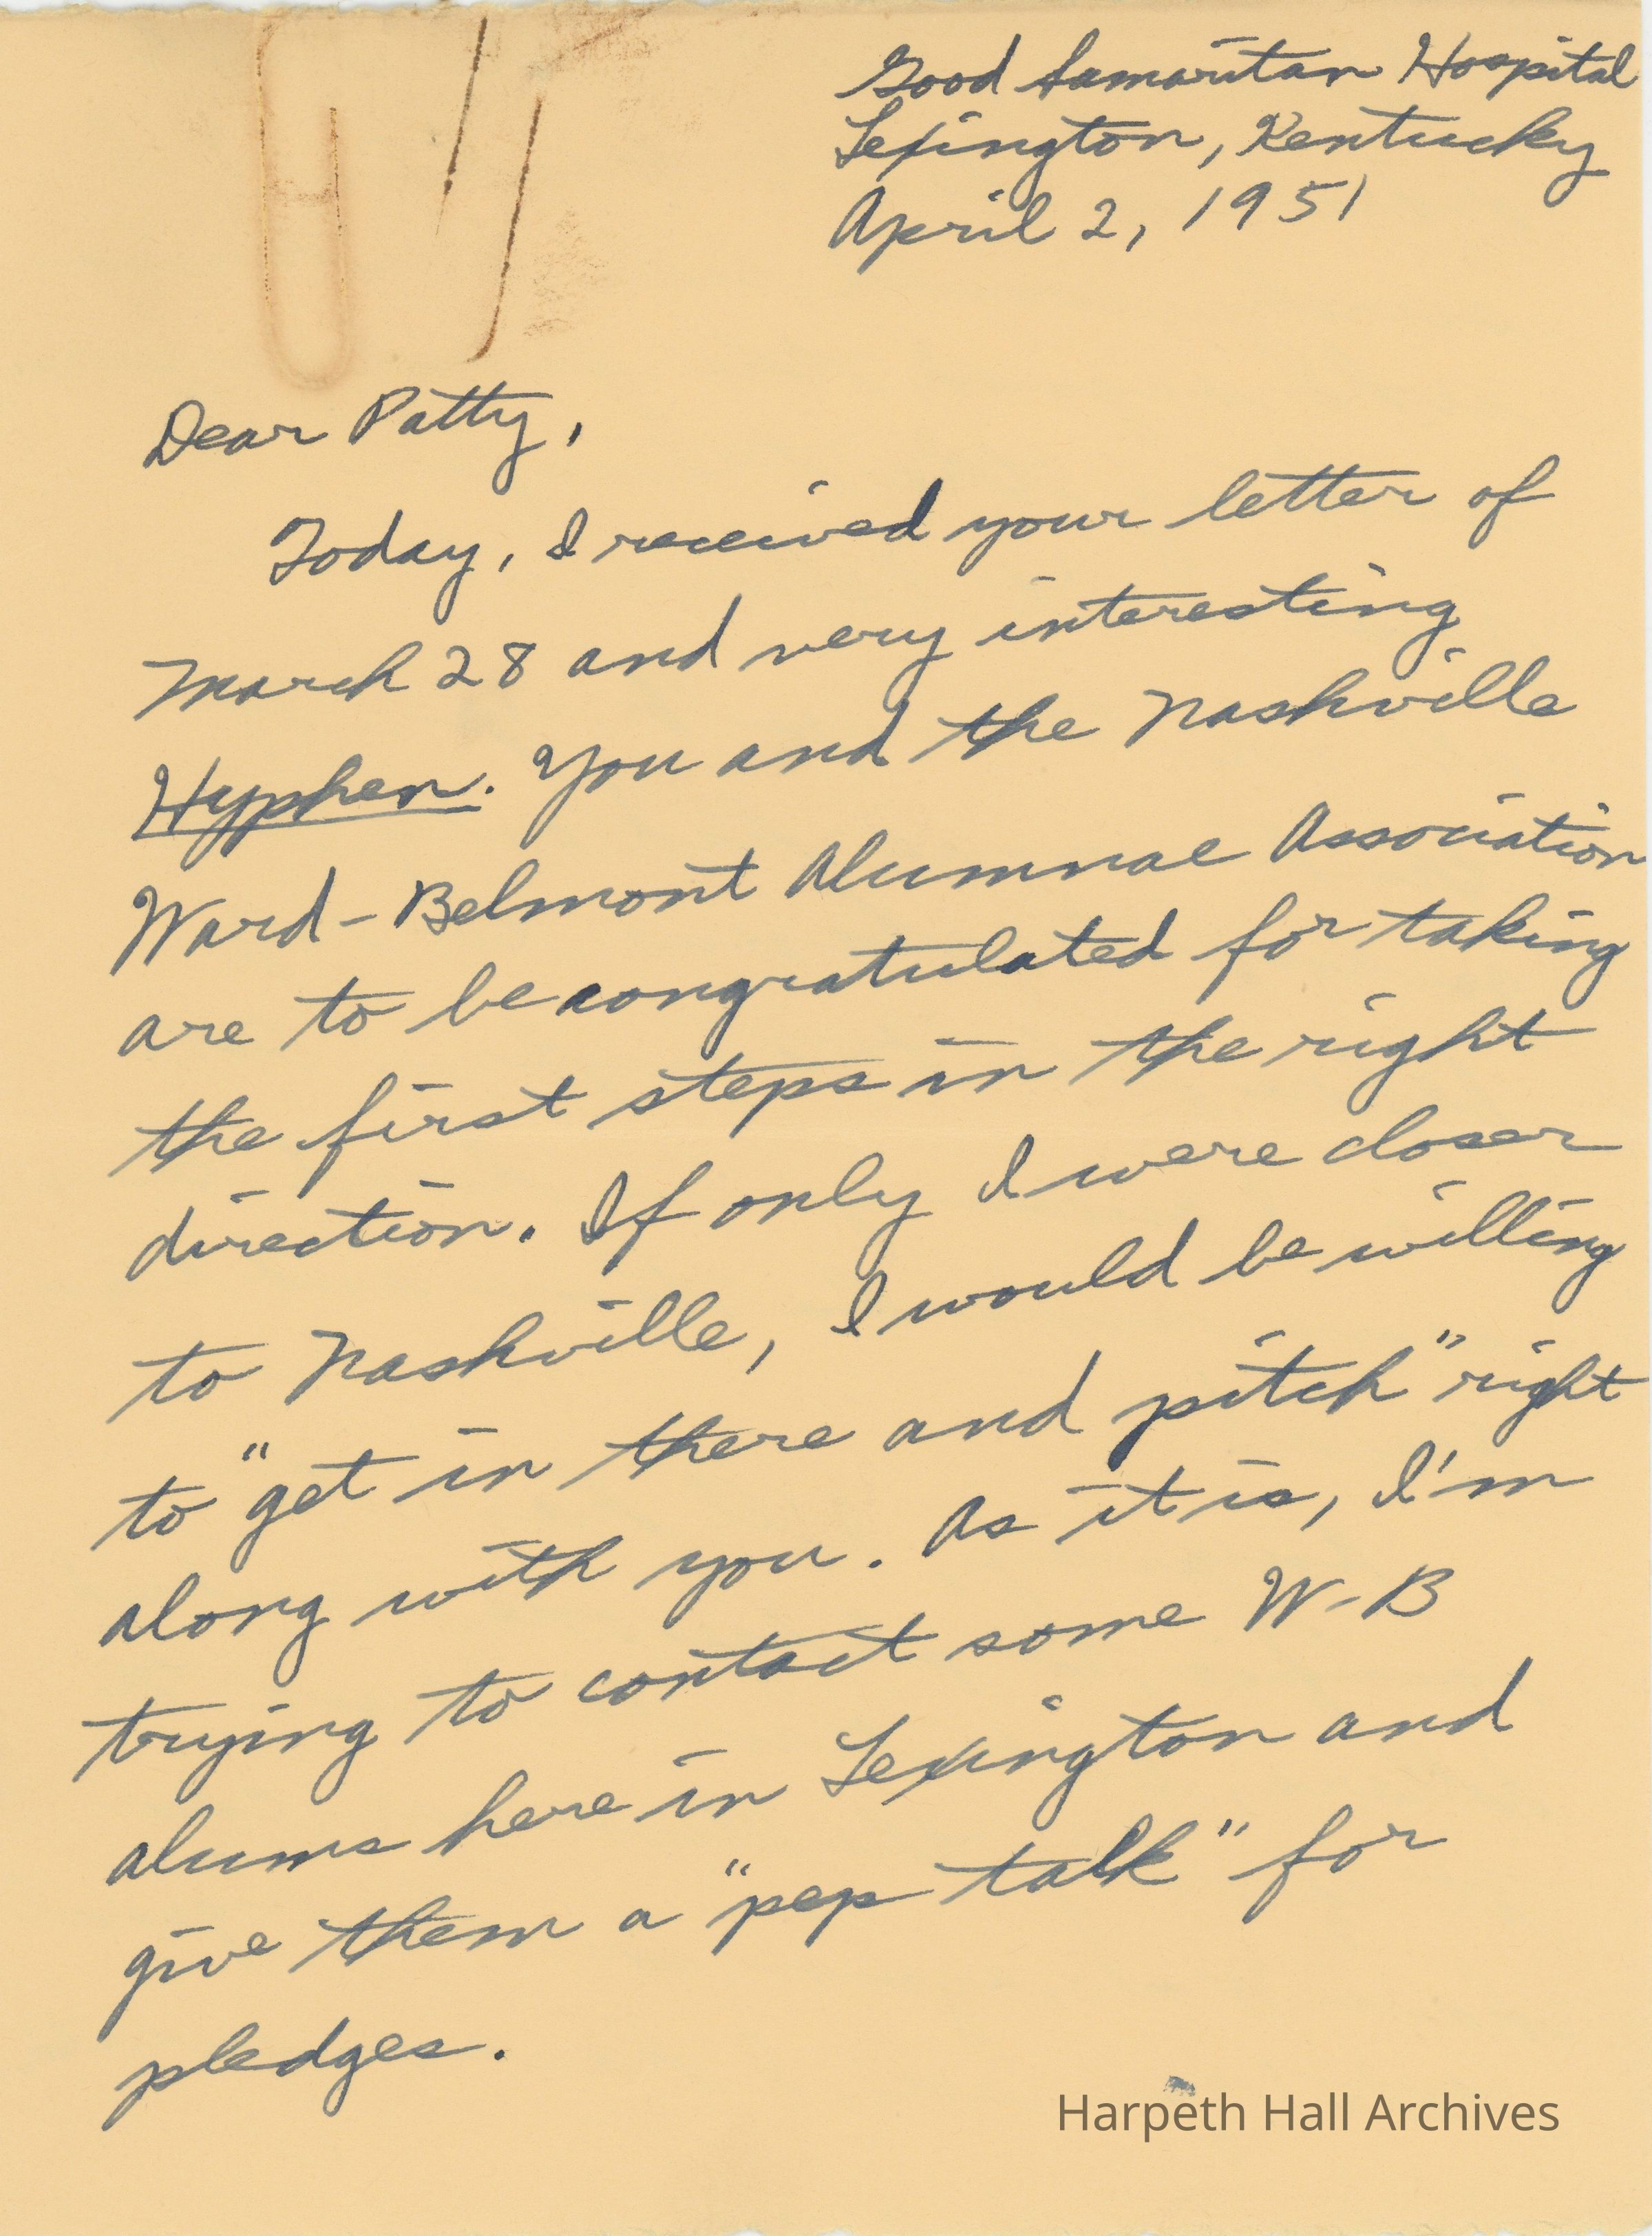 Good Samaritan Hospital
Lexington, Kentucky
April 2, 1951
Dear Patty,
Today, I received your letter of
March 28 and very interesting
Hyphen. You and the Nashville
Ward-Belmont Alumnae Association
are to be congratulated for taking
the first steps in the right
direction. If only I were closer
to Nashville, I would be willing
to "get in there and pitch" right
along with you. As it is, I'm
trying to contact some W-B
alums here in Lexington and
give them a "pep talk" for
pledges.
Harpeth Hall Archives